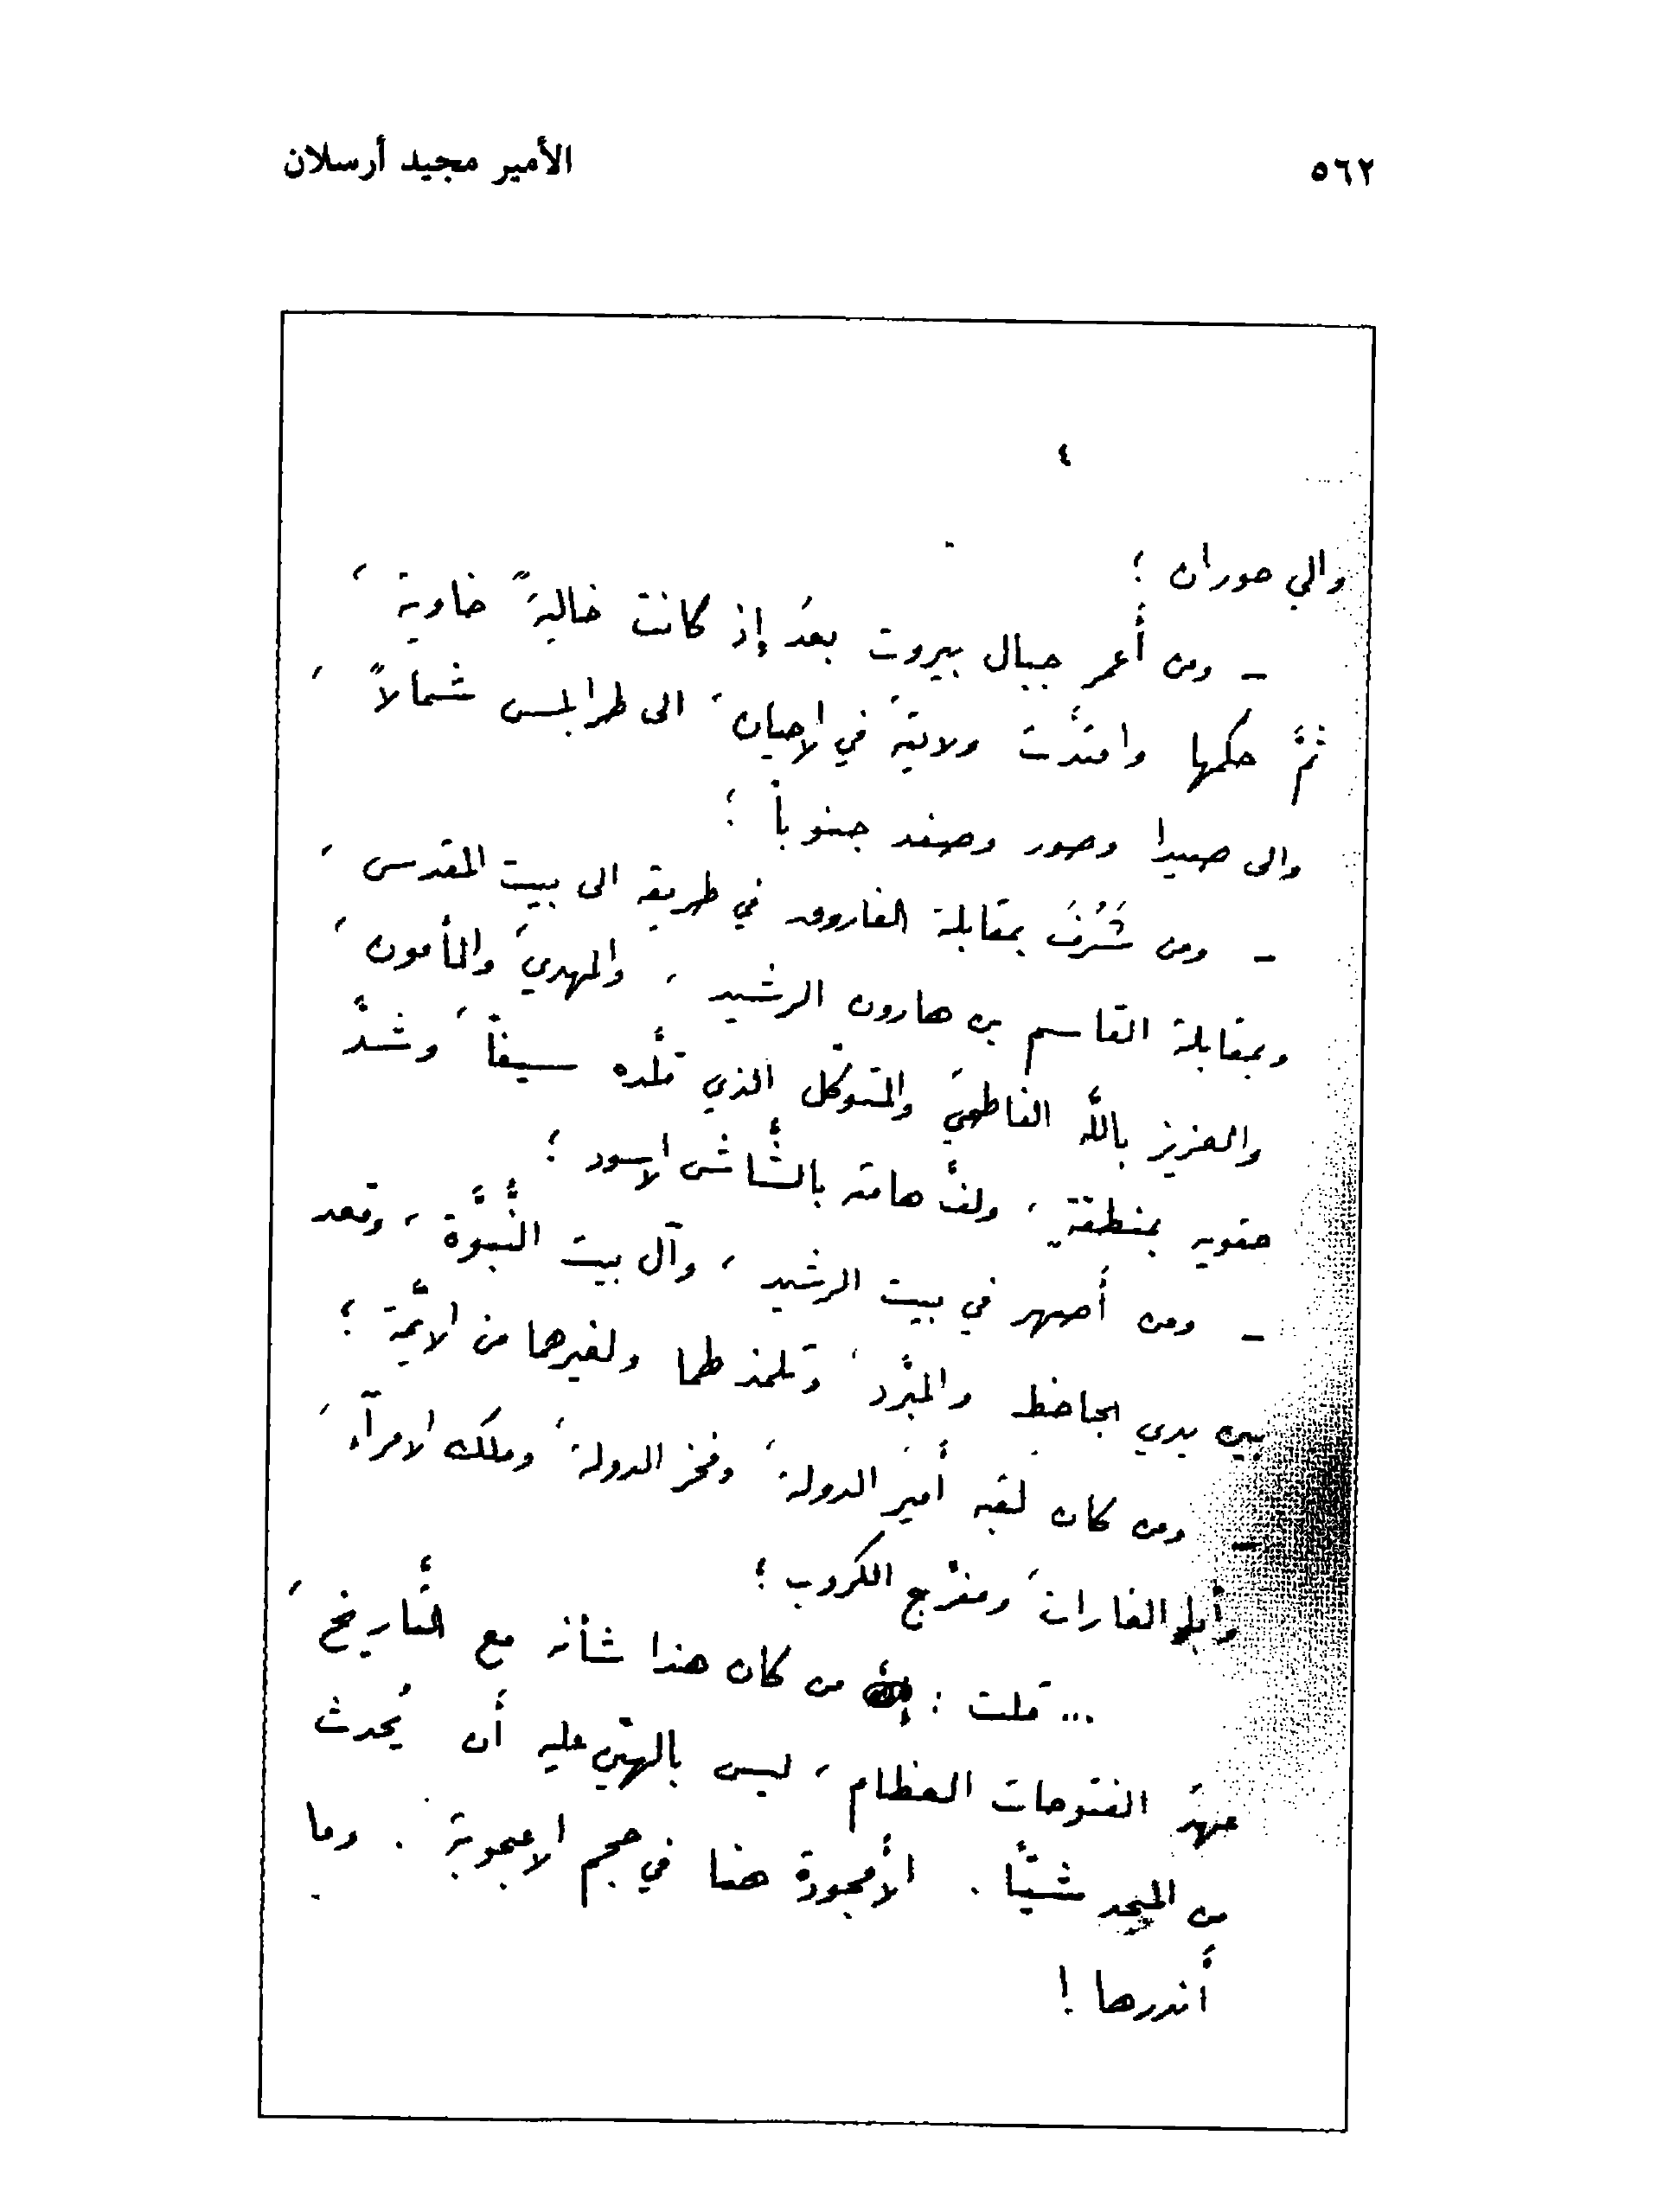 ٥٦٢ الأمير مجيد أرسلان
٤
والي حوران ؛
– ومن أعمر جبال بيروت بعدَ إذ كانت خاليةً خاوية ،
ثمَّ حكمها وامتدَّت ولايتَه في الاحيان ، الى طرابلس شمالاً ،
والى صيدا وصور وصفد جنوباً ؛
– ومن شَرُفَ بمقابلة الفاروق في طريقه الى بيت المقدس ،
وبمقابلة القاسم بن هارون الرشيد ، والمهديّ ، والمأمون ،
والعزيز باللّٰه الفاطميّ ، والمتوكّل الذي قلّده سيفاً ، وشدَّ
حقويه بمنطقةٍ ، ولفَّ هامته بالشَّاش الاسود ؛
– ومن أصهر في بيت الرشيد ، وآل بيت النُّبوَّة ، وقعد
بين يدي الجاحظ والمبرَّد ، وتلمذ لهما ولغيرهما من الائمَّة ؛
– ومن كان لقبه أميرَ الدولة ، وفخر الدولة ، وملك الامرآء ،
وأبو الغارات ، ومفرّج الكروب ؛
... قلت : من كان هذا شأنه مع التَّاريخ ،
عهدَ الفتوحات العظام ، ليس بالهيّن عليه أن يُحدث
من المجد شيئاً . الأمجودة هنا في حجم الاعجوبة . وما
أندرها !